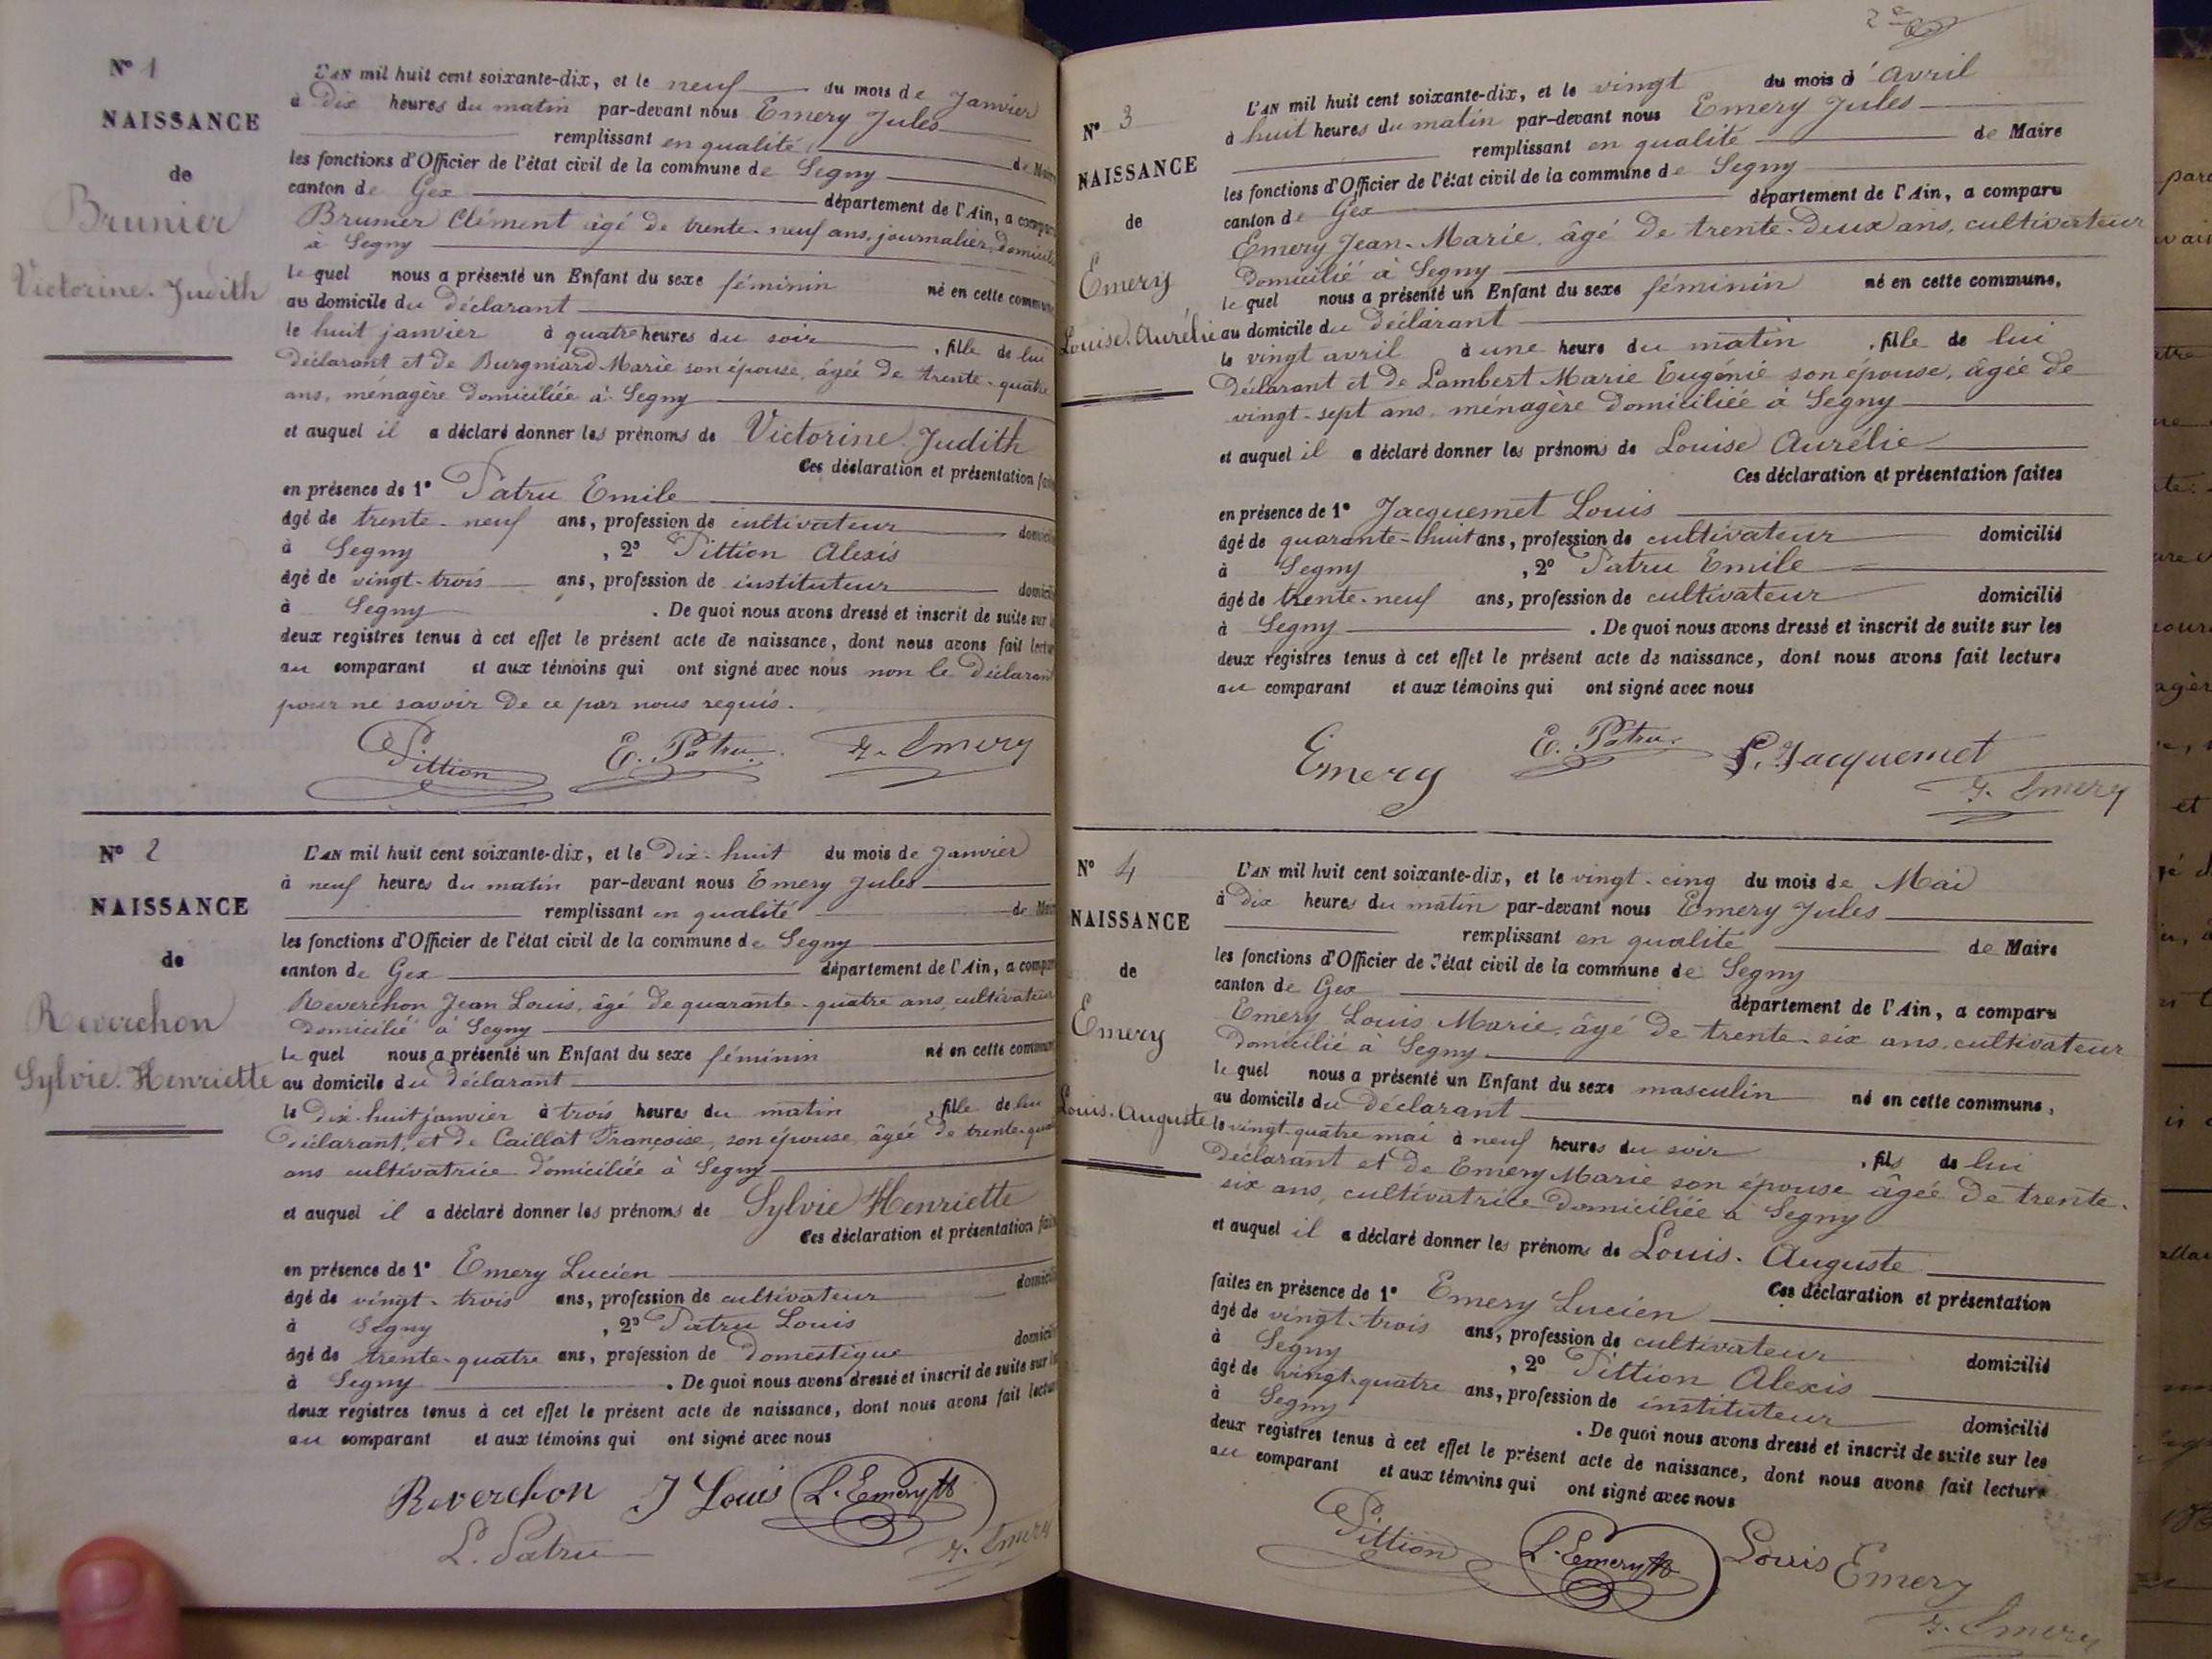 N° 1
NAISSANCE
de
Brunier
Victorine-Judith
L'AN mil huit cent soixante-dix, et le neuf du mois de Janvier
à Dix heures du matin par-devant nous Emery Jules
remplissant en qualité de Maire
les fonctions d'Officier de l'état civil de la commune de Segny
canton de Gex département de l'Ain, a compar
Brunier Clément âgé de trente-neuf ans, journalier, domicilié
à Segny
le quel nous a présenté un Enfant du sexe féminin né en cette commune
au domicile du déclarant
le huit janvier à quatre heures du soir , fille de lui
déclarant et de Burgniard Marie son épouse, âgée de trente-quatre
ans, ménagère domiciliée à Segny
et auquel il a déclaré donner les prénoms de Victorine Judith
Ces déclaration et présentation fai
en présence de 1° Patru Emile
âgé de trente-neuf ans, profession de cultivateur domicili
à Segny , 2° Pittion Alexis
âgé de vingt-trois ans, profession de instituteur domicili
à Segny . De quoi nous avons dressé et inscrit de suite sur l
deux registres tenus à cet effet le présent acte de naissance, dont nous avons fait lectur
au comparant et aux témoins qui ont signé avec nous non le déclarant
pour ne savoir de ce par nous requis.
Pittion E. Patru J. Emery
N° 2
NAISSANCE
de
Reverchon
Sylvie-Henriette
L'AN mil huit cent soixante-dix, et le Dix-huit du mois de Janvier
à neuf heures du matin par-devant nous Emery Jules
remplissant en qualité de Mair
les fonctions d'Officier de l'état civil de la commune de Segny
canton de Gex département de l'Ain, a compar
Reverchon Jean Louis, âgé de quarante-quatre ans, cultivateur
domicilié à Segny
le quel nous a présenté un Enfant du sexe féminin né en cette commun
au domicile du déclarant
le Dix-huit janvier à trois heures du matin , fille de lui
déclarant, et de Caillat Françoise, son épouse âgée de trente-qua
ans cultivatrice domiciliée à Segny
et auquel il a déclaré donner les prénoms de Sylvie Henriette
Ces déclaration et présentation fai
en présence de 1° Emery Lucien
âgé de vingt-trois ans, profession de cultivateur domicili
à Segny , 2° Patru Louis
âgé de trente-quatre ans, profession de Domestique domicili
à Segny . De quoi nous avons dressé et inscrit de suite sur l
deux registres tenus à cet effet le présent acte de naissance, dont nous avons fait lectur
au comparant et aux témoins qui ont signé avec nous
Reverchon J Louis L. Emery
L. Patru J. Emery
N° 3
NAISSANCE
de
Emery
Louise-Aurélie
L'AN mil huit cent soixante-dix, et le vingt du mois d'Avril
à huit heures du matin par-devant nous Emery Jules
remplissant en qualité de Maire
les fonctions d'Officier de l'état civil de la commune de Segny
canton de Gex département de l'Ain, a comparu
Emery Jean-Marie, âgé de trente-deux ans, cultivateur
domicilié à Segny
le quel nous a présenté un Enfant du sexe féminin né en cette commune,
au domicile du déclarant
le vingt avril à une heure du matin , fille de lui
déclarant et de Lambert Marie Eugénie son épouse, âgée de
vingt-sept ans ménagère domiciliée à Segny
et auquel il a déclaré donner les prénoms de Louise Aurélie
Ces déclaration et présentation faites
en présence de 1° Jacquemet Louis
âgé de quarante-huit ans, profession de cultivateur domicilié
à Segny , 2° Patru Emile
âgé de trente-neuf ans, profession de cultivateur domicilié
à Segny . De quoi nous avons dressé et inscrit de suite sur les
deux registres tenus à cet effet le présent acte de naissance, dont nous avons fait lecture
au comparant et aux témoins qui ont signé avec nous
Emery E. Patru L. Jacquemet
J. Emery
N° 4
NAISSANCE
de
Emery
Louis-Auguste
L'AN mil huit cent soixante-dix, et le vingt-cinq du mois de Mai
à Dix heures du matin par-devant nous Emery Jules
remplissant en qualité de Maire
les fonctions d'Officier de l'état civil de la commune de Segny
canton de Gex département de l'Ain, a comparu
Emery Louis Marie, âgé de trente-six ans, cultivateur
domicilié à Segny
le quel nous a présenté un Enfant du sexe masculin né en cette commune,
au domicile du déclarant
le vingt-quatre mai à neuf heures du soir , fils de lui
déclarant et de Emery Marie son épouse âgée de trente-
six ans, cultivatrice domiciliée à Segny
et auquel il a déclaré donner les prénoms de Louis-Auguste
Ces déclaration et présentation
faites en présence de 1° Emery Lucien
âgé de vingt-trois ans, profession de cultivateur domicilié
à Segny , 2° Pittion Alexis
âgé de vingt-quatre ans, profession de instituteur domicilié
à Segny . De quoi nous avons dressé et inscrit de suite sur les
deux registres tenus à cet effet le présent acte de naissance, dont nous avons fait lecture
au comparant et aux témoins qui ont signé avec nous
Pittion L. Emery Louis Emery
J. Emery